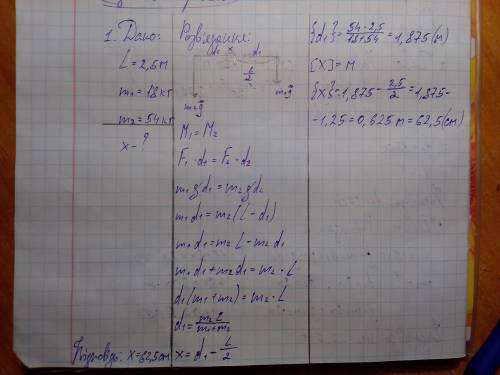 1. Дано:
L = 2,5м
m₁ = 18 кг
m₂ = 54 кг
x - ?
Розв'язання:
d₂ x d₁
L/2
m₂g⃗
m₁g⃗
M₁ = M₂
F₁ · d₁ = F₂ · d₂
m₁gd₁ = m₂gd₂
m₁d₁ = m₂(L - d₁)
m₁d₁ = m₂L - m₂d₁
m₁d₁ + m₂d₁ = m₂ · L
d₁(m₁ + m₂) = m₂ · L
d₁ = m₂L/m₁+m₂
x = d₁ - L/2
{d₁} = 54·2,5/18+54 = 1,875(м)
[X] = м
{x} = 1,875 - 2,5/2 = 1,875-
-1,25 = 0,625м = 62,5(см)
Відповідь: x = 62,5см